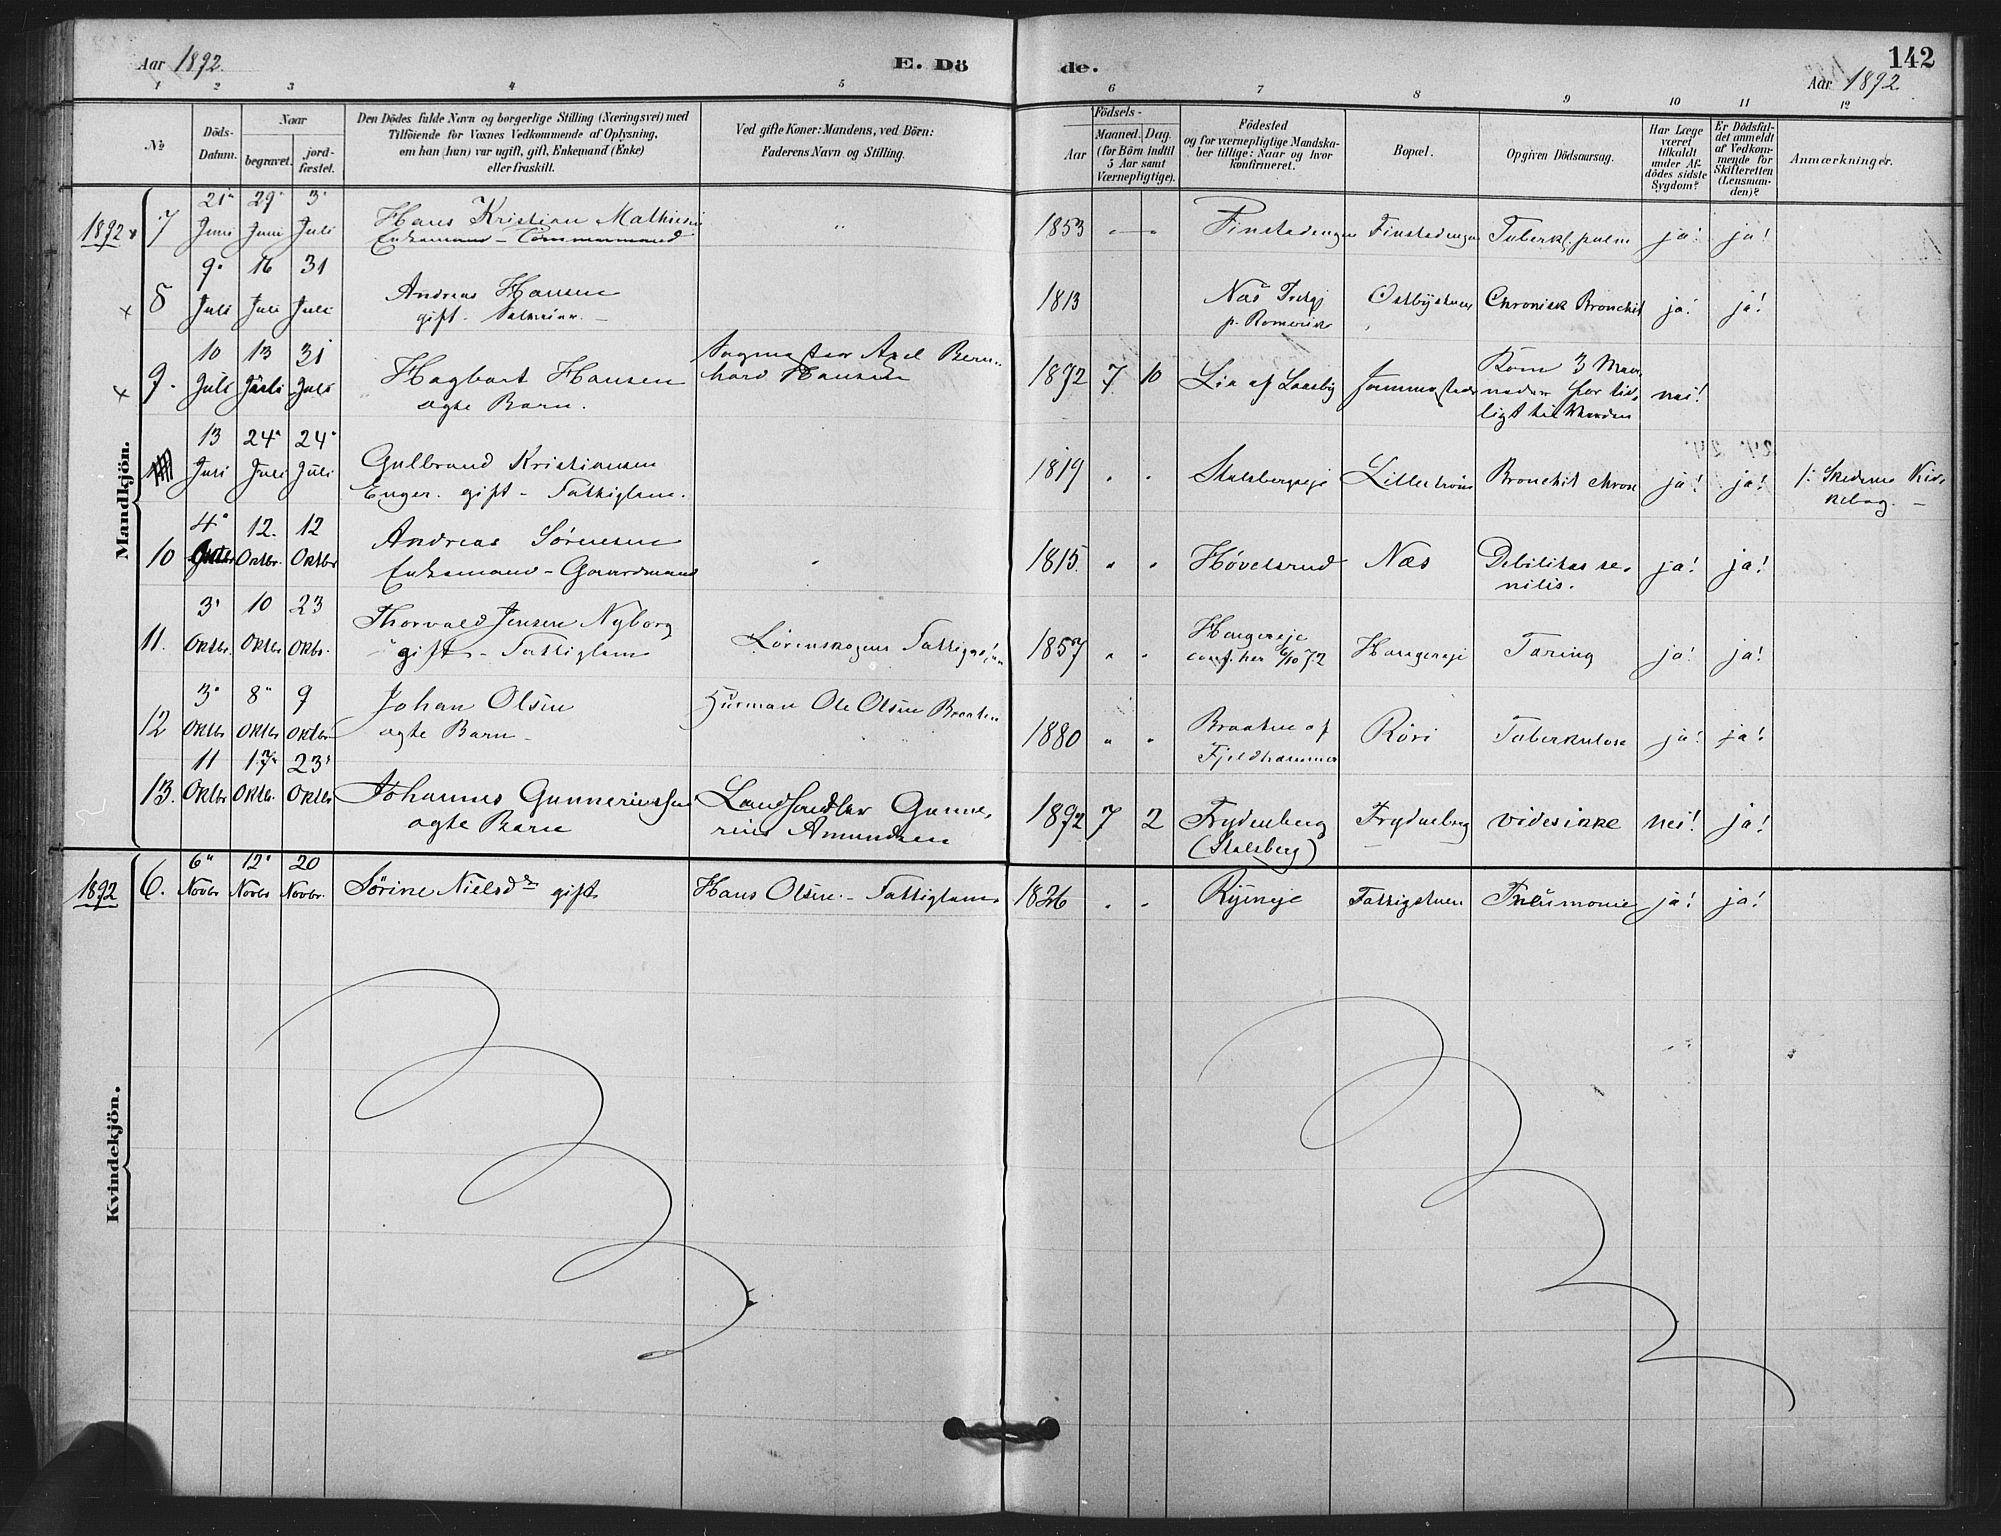 Aar 1892.
E. Dö
de.
142
Aar 1892
1 2 3 4 5 6 7 8 9 10 11 12
No
Döds-
Datum.
Naar
begravet.
jord-
fæstet.
Den Dödes fulde Navn og borgerlige Stilling (Næringsvei) med
Tilföiende for Voxnes Vedkommende af Oplysning,
om han (hun) var ugift, gift, Enkemand (Enke)
eller fraskilt.
Ved gifte Koner: Mandens, ved Börn:
Faderens Navn og Stilling.
Födsels-
Aar
Maaned.
Dag.
(for Börn indtil
5 Aar samt
Værnepligtige).
Födested
og for værnepligtige Mandska-
ber tillige: Naar og hvor
konfirmeret.
Bopæl.
Opgiven Dödsaarsag.
Har Læge
været
tilkaldt
under Af-
dödes sidste
Sygdom?
Er Dödsfal-
det anmeldt
af Vedkom-
mende for
Skifteretten
(Lensman-
den)?
Anmærkninger.
Mandkjön.
1892 7
21 Juni
29 Juni
3 Juli
Hans Kristian Mathisen
Enkemand
1853
Finstadengen
Finstadengen
Tuberkl. pulm
ja!
ja!
8
9 Juli
16 Juli
31 Juli
Andreas Hansen
gift.
1813
Næs Prstgj
p. Romerike
Østbystuen
Chronisk Bronchit
ja!
ja!
9.
10 Juli
13 Juli
31 Juli
Hagbart Hansen
ægte Barn.
Sagmester Axel Bern-
hard Hansen
1892 7 10
Lia af Laasby
Kom 3 Maa-
neder for tid-
ligt til Verden
nei!
13 Juli
24 Juli
24 Juli
Gulbrand Kristiansen
Enger. gift - Fattiglem.
1819
Stalsbergeje
Lillestrøm
Bronchit chron
ja!
ja!
10
4 Oktbr
12. Oktbr.
12 Oktbr
Andreas Sørensen
Enkemand - Gaardmand
1815
Høvelsrud
Næs
Debilitas se-
nilis.
ja!
ja!
11.
3 Oktbr.
10 Oktbr
23 Oktbr.
Thorvald Jensen Nyborg
gift - Fattiglem
Lørenskogens
1857
Haugereje
conf. her 6/10 72
Haugereje
Tæring
ja!
ja!
12
3 Oktbr
8 Oktbr
9 Oktbr
Johan Olsen
ægte Barn
Husmand Ole Olsen Braaten
1880
Braaten af
Fjeldhammer
Røri
Tuberkulose
ja!
ja!
13.
11 Oktbr
17 Oktbr.
23 Oktbr
Johannes Gunneriussen
ægte Barn
Landhandler Gunne-
rius Amundsen
1892 7 2
Frydenberg
(Stalsberg)
Frydenberg
vides ikke
nei!
ja!
Kvindekjön.
1892 6.
6 Novbr
12 Novbr
20 Novbr.
Sørine Nielsdr gift
Hans Olsen - Fattiglem
1826
Ryeneje
Fattigstuen
Pneumonie
ja!
ja!